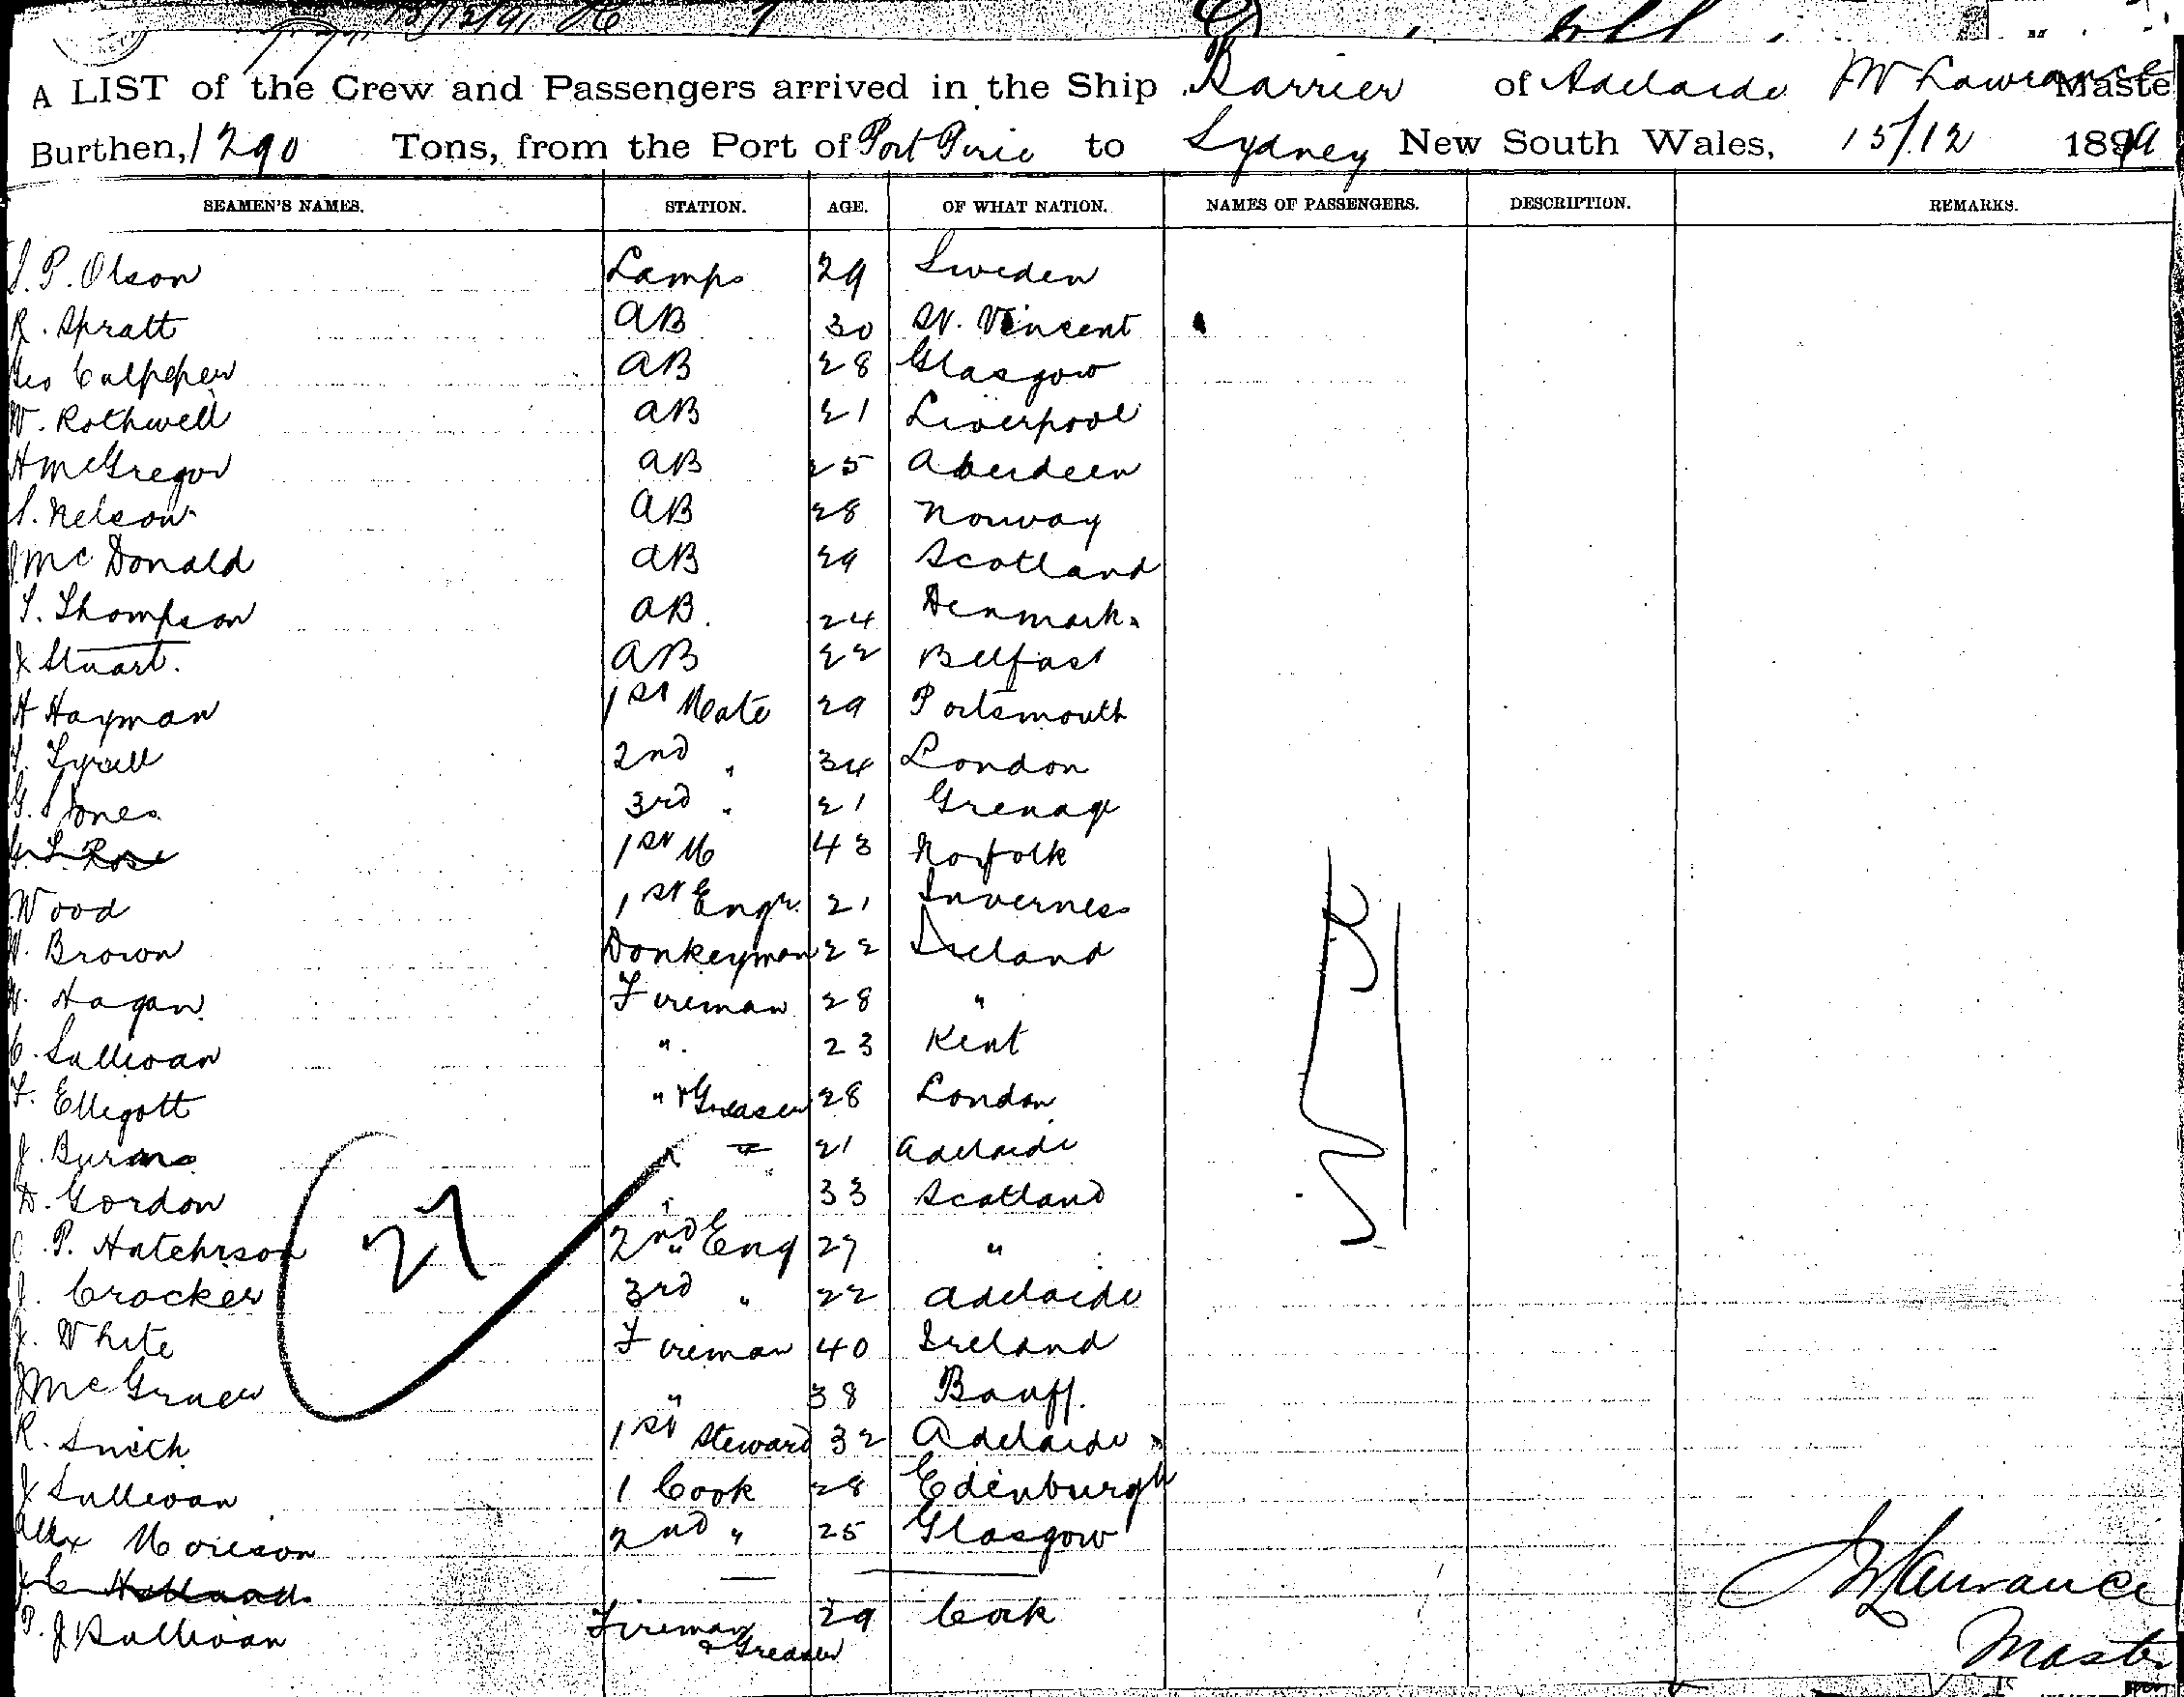 13/12/91
A LIST of the Crew and Passengers arrived in the Ship Barrier of Adelaide J W Lawrance Maste
Burthen, 1290 Tons, from the Port of Port Pirie to Sydney New South Wales, 15/12 1891
SEAMEN'S NAMES. STATION. AGE. OF WHAT NATION. NAMES OF PASSENGERS. DESCRIPTION. REMARKS.
S. P. Olson Lamps 29 Sweden
R. Spratt AB 30 St. Vincent
Geo Culpeper AB 28 Glasgow
W. Rothwell AB 21 Liverpool
H McGregor AB 25 Aberdeen
S. Nelson AB 28 Norway
J McDonald AB 29 Scotland
T. Thompson AB. 24 Denmark.
J Stuart. AB 22 Belfast
H Hayman 1st Mate 29 Portsmouth
T. Tyrell 2nd " 34 London
G. S Jones 3rd " 21
G. L. Rose 1st M 43 Norfolk
Wood 1st Engr. 21 Inverness
W. Brown Donkeyman 22 Ireland
Hagan Fireman 28 "
C. Sullivan " 23 Kent
F. Elligott " & Greaser 28 London
J. Burns " 21 Adelaide
D. Gordon " 33 Scotland
P. Hutchrson 2nd Eng 27 "
J. Crocker 3rd " 22 Adelaide
J. White Fireman 40 Ireland
J McGruer " 38 Banff.
R. Smith 1st Steward 32 Adelaide
J Sullivan 1 Cook 28 Edinburgh
Alex Morison 2nd " 25 Glasgow
J C Holland
P. J Sullivan Fireman & Greaser 29 Cork
27
J W Lawrance
Master